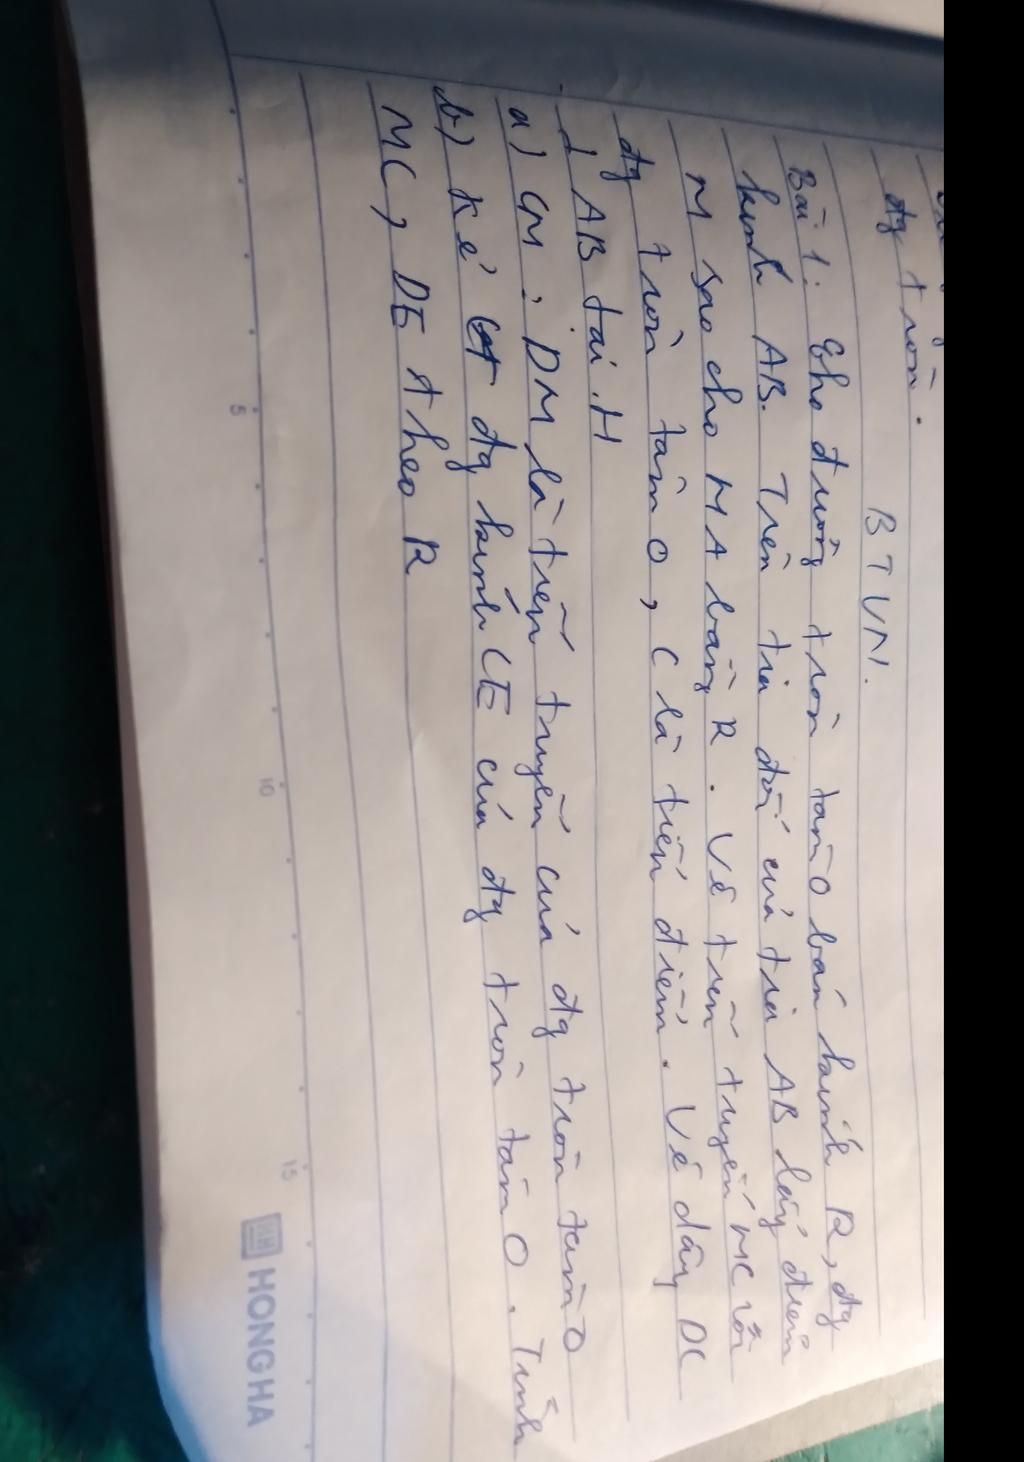 đg tròn.
BTVN.
Bài 1: Cho đường tròn tâm O bán kính R, đg
kính AB. Trên tia đối của tia AB lấy điểm
M sao cho MA bằng R. Vẽ tiến tuyến MC với
đg tròn tâm O, C là tiến điểm. Vẽ dây DC
⊥ AB tại H
a) CM: DM là tiến tuyến của đg tròn tâm O
b) Kẻ đg kính CE của đg tròn tâm O. Tính
MC, DE theo R
5 10 15
HONG HA